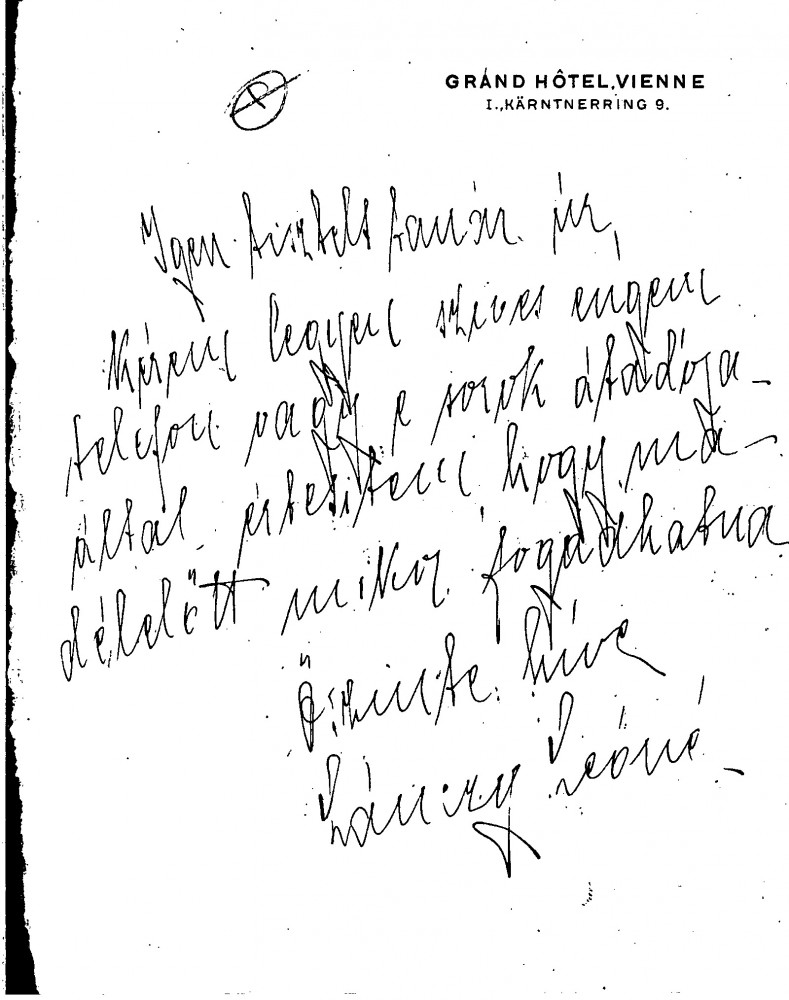 GRAND HÔTEL, VIENNE
I., KÄRNTNERRING 9.
Igen tisztelt tanár úr,
Kérem legyen szíves engem
telefon vagy e sorok átadója
által értesíteni, hogy ma
délelőtt mikor fogadhatna
Őszinte híve
Lánczy Leóné